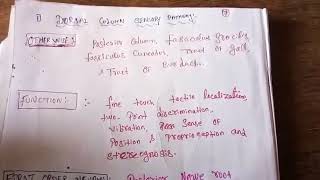 1) DORSAL COLUMN SENSORY PATHWAY:
OTHER NAMES:- Posterior Column, fasciculus gracilis,
fasciculus Cuneatus, Tract of Goll,
& Tract of Burdach.
FUNCTION:- fine touch, tactile localization,
two Point discrimination,
Vibration, Sense of
Position & Proprioception and
stereognosis.
FIRST ORDER NEURON:- Posterior Nerve root